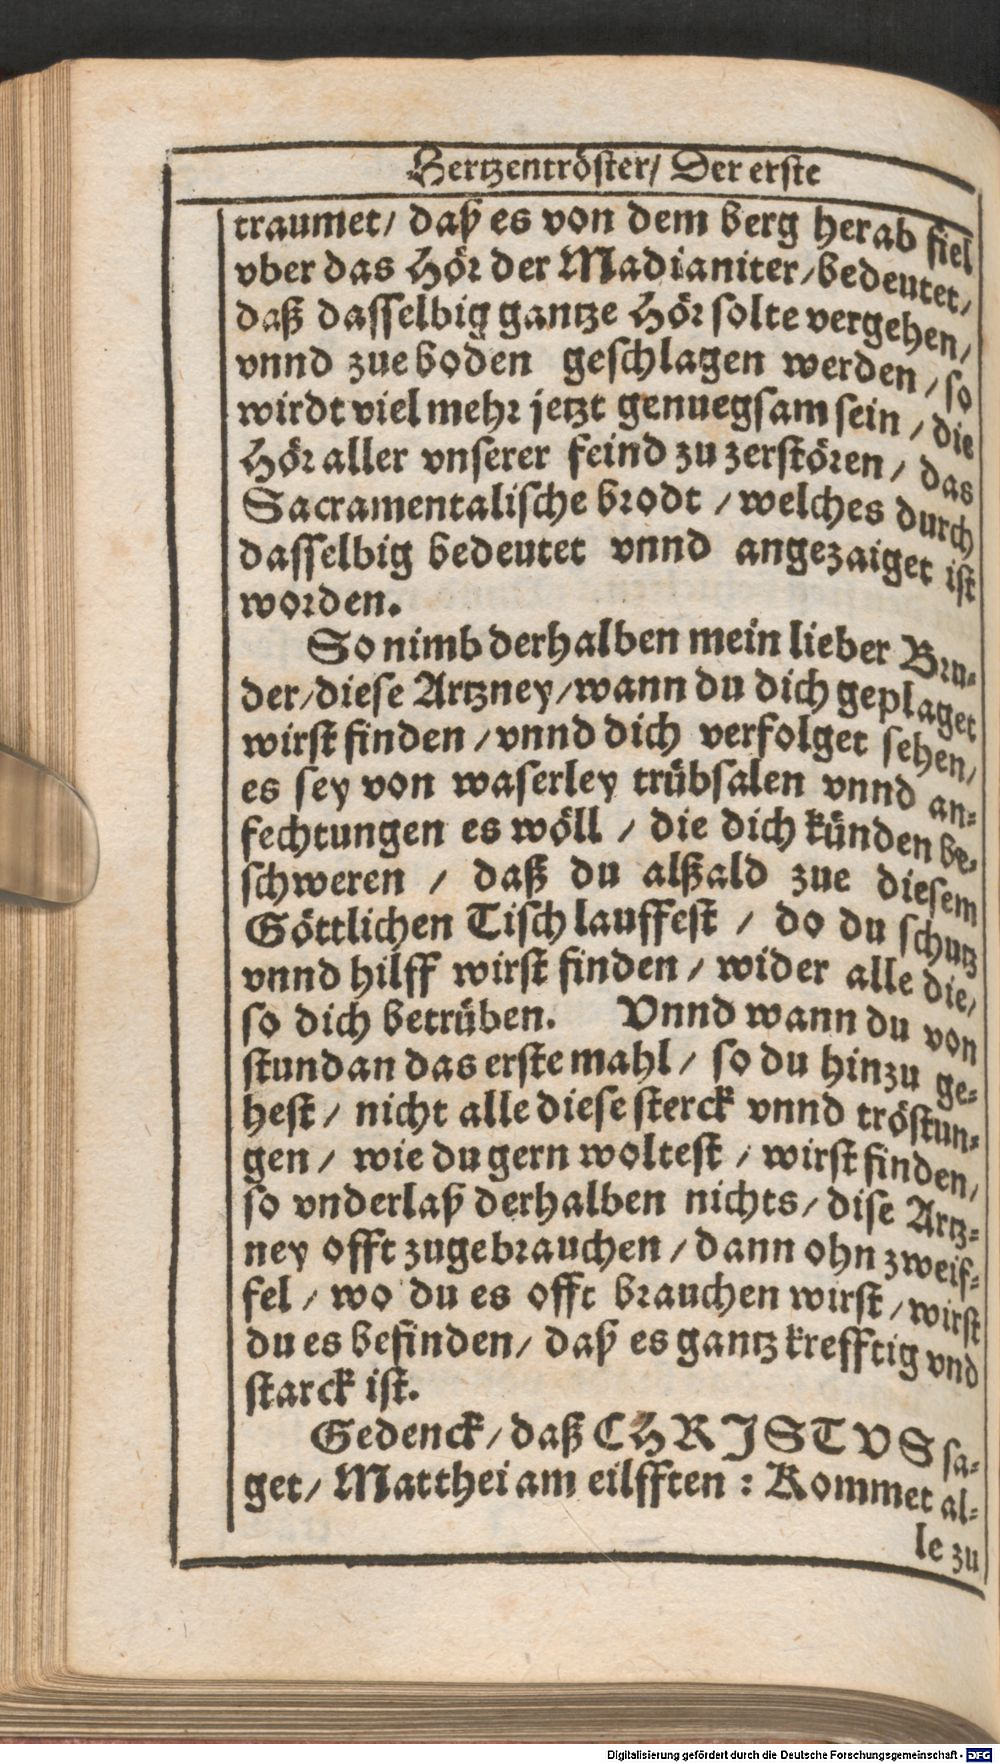 Hertzentröster/ Der erste
traumet/ daß es von dem berg herab fiel
vber das Hör der Madianiter/bedeutet/
daß dasselbig gantze Hör solte vergehen/
vnnd zue boden geschlagen werden/so
wirdt viel mehr jetzt genuegsam sein/die
Hör aller vnserer feind zu zerstören/ das
Sacramentalische brodt/welches durch
dasselbig bedeutet vnnd angezaiget ist
worden.
So nimb derhalben mein lieber Bru-
der/diese Artzney/wann du dich geplaget
wirst finden/vnnd dich verfolget sehen/
es sey von waserley trübsalen vnnd an-
fechtungen es wöll/ die dich künden be-
schweren/ daß du alßald zue diesem
Göttlichen Tisch lauffest/ do du schutz
vnnd hilff wirst finden/ wider alle die/
so dich betrüben. Vnnd wann du von
stund an das erste mahl/ so du hinzu ge-
hest/ nicht alle diese sterck vnnd tröstun-
gen/ wie du gern woltest/ wirst finden/
so vnderlaß derhalben nichts/ dise Artz-
ney offt zugebrauchen/dann ohn zweif-
fel/ wo du es offt brauchen wirst/wirst
du es befinden/ daß es gantz krefftig vnd
starck ist.
Gedenck/daß CHRISTVS sa-
get/ Matthei am eilfften: Kommet al-
le zu
Digitalisierung gefördert durch die Deutsche Forschungsgemeinschaft - DFG